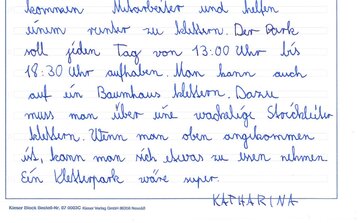 kommen Mitarbeiter und helfen
einem runter zu klettern. Der Park
soll jeden Tag von 13:00 Uhr bis
18:30 Uhr aufhaben. Man kann auch
auf ein Baumhaus klettern. Dazu
muss man über eine wackelige Strickleiter
klettern. Wenn man oben angekommen
ist, kann man sich etwas zu essen nehmen.
Ein Kletterpark wäre super.
KATHARINA
Kieser Block Bestell-Nr. 97 0063C Kieser Verlag GmbH 86356 Neusäß